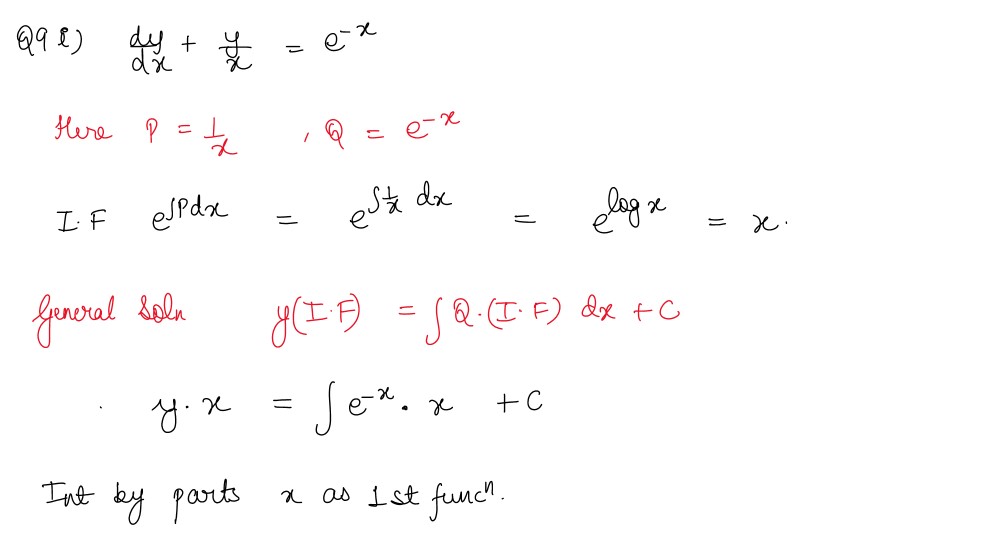 Q9 i) dy/dx + y/x = e^-x
Here P = 1/x , Q = e^-x
I.F e^∫Pdx = e^∫1/x dx = e^log x = x.
General Soln y(I.F) = ∫Q.(I.F) dx + C
. y.x = ∫e^-x . x + C
Int by parts x as 1st funcⁿ.